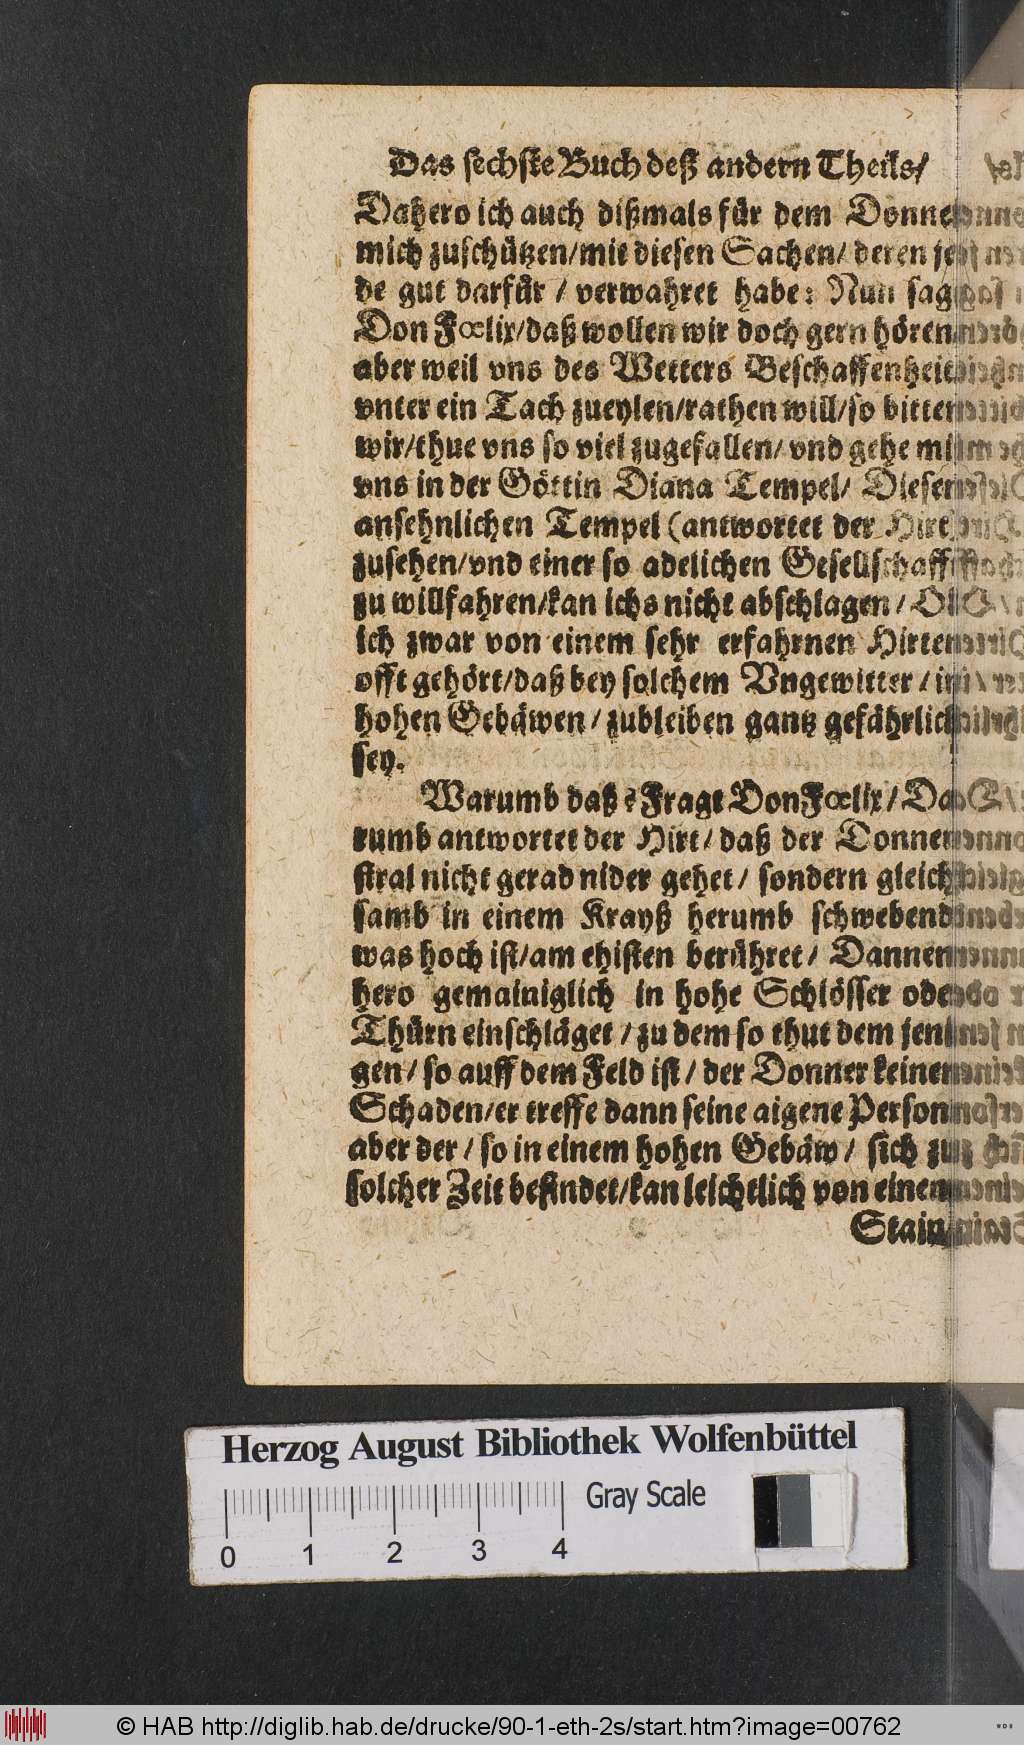 Das sechste Buch deß andern Theils/
Dahero ich auch dißmals für dem Donner
mich zuschützen/mit diesen Sachen/ deren je
de gut darfür / verwahret habe: Nun sagt
Don Fœlix/daß wollen wir doch gern hören
aber weil vns des Wetters Beschaffenheit
vnter ein Tach zueylen/rathen will/so bitten
wir/thue vns so viel zugefallen/ vnd gehe mit
vns in der Göttin Diana Tempel/ Diesen
ansehnlichen Tempel (antwortet der Hirt
zusehen/vnd einer so adelichen Gesellschafft
zu willfahren/kan ichs nicht abschlagen /
ich zwar von einem sehr erfahrnen Hirten
offt gehört/daß bey solchem Vngewitter / in
hohen Gebäwen / zubleiben gantz gefährlich
sey.
Warumb daß? Fragt Don Fœlix / Da
rumb antwortet der Hirt/ daß der Donner
stral nicht gerad nider gehet/ sondern gleich
samb in einem Krayß herumb schwebend
was hoch ist/am ehisten berühret/ Dannen
hero gemainiglich in hohe Schlösser oder
Thürn einschläget / zu dem so thut dem jeni
gen/ so auff dem Feld ist/ der Donner keinen
Schaden/er treffe dann seine aigene Person
aber der / so in einem hohen Gebäw / sich zu
solcher Zeit befindet/kan leichtlich von einem
Stain
Herzog August Bibliothek Wolfenbüttel
Gray Scale
0 1 2 3 4
© HAB http://diglib.hab.de/drucke/90-1-eth-2s/start.htm?image=00762